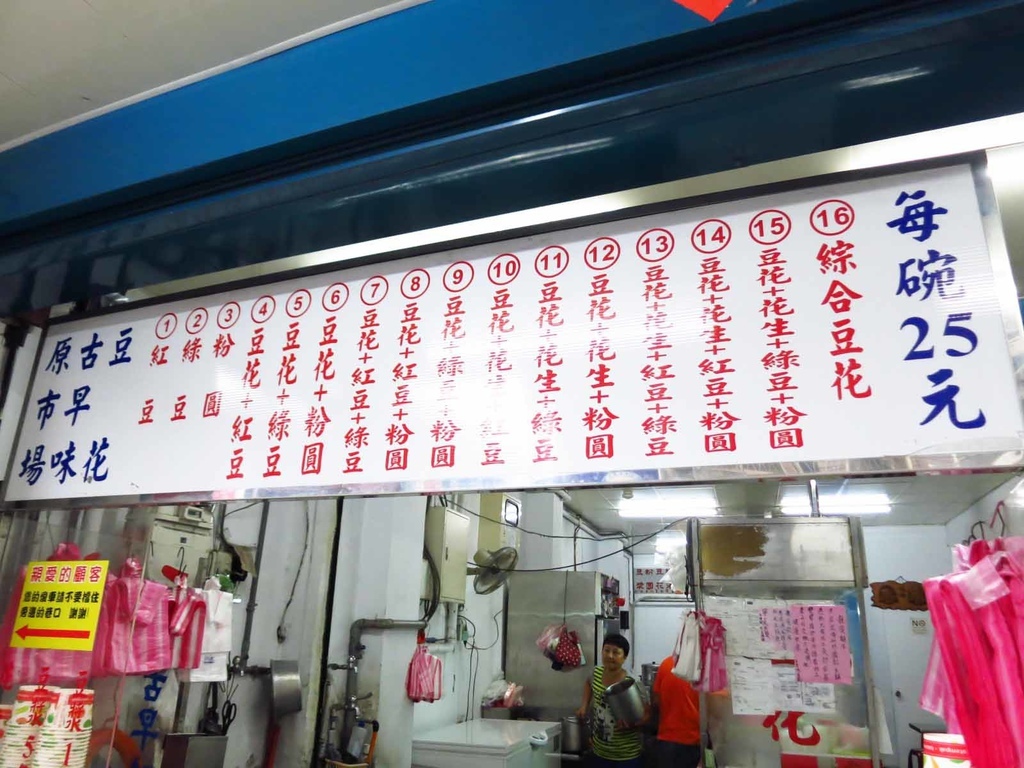 豆花
古早味
原市場
① 紅豆
② 綠豆
③ 粉圓
④ 豆花+紅豆
⑤ 豆花+綠豆
⑥ 豆花+粉圓
⑦ 豆花+紅豆+綠豆
⑧ 豆花+紅豆+粉圓
⑨ 豆花+綠豆+粉圓
⑩ 豆花+花生+紅豆
⑪ 豆花+花生+綠豆
⑫ 豆花+花生+粉圓
⑬ 豆花+花生+紅豆+綠豆
⑭ 豆花+花生+紅豆+粉圓
⑮ 豆花+花生+綠豆+粉圓
⑯ 綜合豆花
每碗25元
親愛的顧客
您的機車請不要擋住
旁邊的巷口 謝謝!
豆漿
5
豆漿
1
古早
花
NO